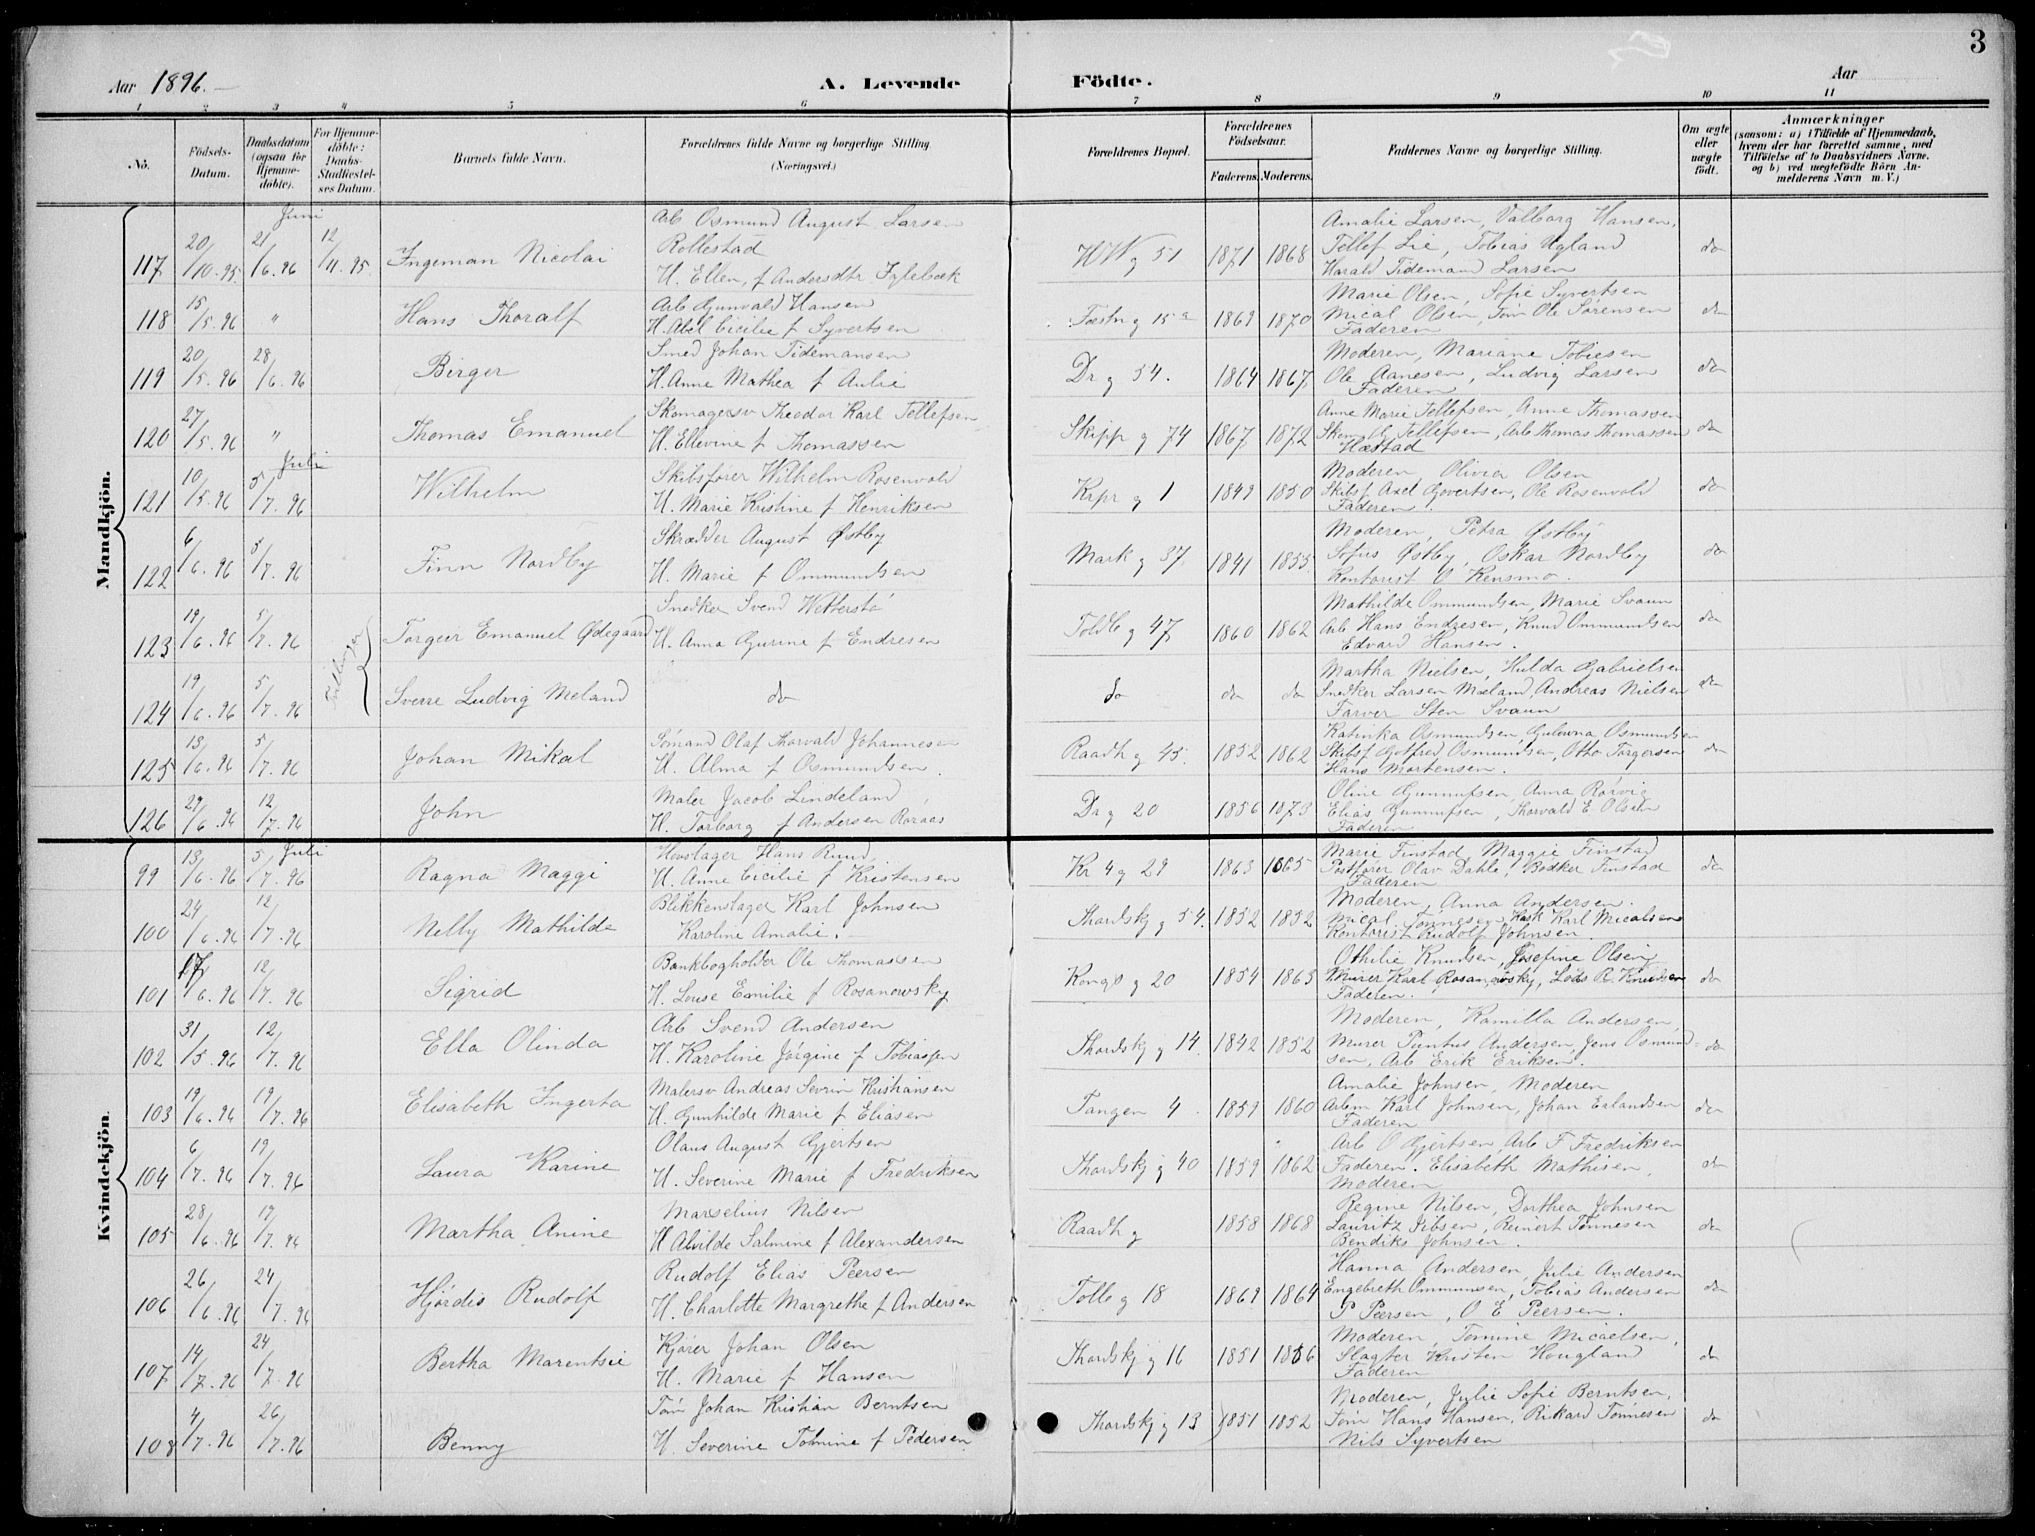 3
Aar 1896.
A. Levende Födte.
Aar
1 2 3 4 5 6 7 8 9 10 11
No.
Födsels-Datum.
Daabsdatum (ogsaa for Hjemmedöbte).
For Hjemmedöbte: Daabs-Stadfæstelses Datum.
Barnets fulde Navn.
Forældrenes fulde Navne og borgerlige Stilling (Næringsvei.)
Forældrenes Bopæl.
Forældrenes Födselsaar.
Faderens. Moderens.
Faddernes Navne og borgerlige Stilling.
Om ægte eller uægte födt.
Anmærkninger
(saasom: a) i Tilfælde af Hjemmedaab, hvem der har forrettet samme, med Tilföielse af to Daabsvidners Navne. og b) ved uægtefödte Börn Anmelderens Navn m. V.)
Mandkjön.
Juni
117 20/10.95. 21/6.96 12/11.95. Ingeman Nicolai
Arb Osmund August Larsen
Rollestad
H. Ellen, f Andersdtr
HW g 51 1871 1868
Amalie Larsen, Valborg Hansen,
Tellef Lie, Tobias Ugland
Harald Tidemand Larsen
do
118 15/5.96 " Hans Thoralf
Arb Gunvald Hansen
H. Abel Cicilie f Syvertsen
Fæstn g 15a 1869 1870
Marie Olsen, Sofie Syvertsen
Mical Olsen, Tøm Ole Sørensen
Faderen
do
119 20/5.96 28/6.96 Birger
Smed Johan Tidemansen
H. Anne Mathea f
Dr g 54. 1864 1867
Moderen, Mariane Tobiesen
Ole Aanesen, Ludvig Larsen
Faderen
do
120 27/5.96 " Thomas Emanuel
Skomagersv Theodor Karl Tellefsen
H. Ellevine f Thomassen
Skipp g 74 1867 1872
Anne Marie Tellefsen, Anne Thomassen
Skom Tellefsen, Arb Thomas Thomassen
do
Juli
121 10/5.96 5/7.96 Wilhelm
Skibsfører Wilhelm Rosenvold
H. Marie Kristine f Henriksen
Krpr g 1 1849 1850
Moderen, Olivia Olsen
Skibsf Axel Govertsen, Ole Rosenvold
Faderen.
do
122 6/6.96 5/7.96 Finn Nordby
Skrædder August Østby
H. Marie f Ommundsen
Mark g 37. 1841 1855.
Moderen, Petra Østby
Sofus Østby, Oskar Nordby
Kontorist O Rensmo.
do
Tvillinger
123 19/6.96 5/7.96 Torgeir Emanuel Ødegaard
Snedker Svend Wetterstø
H. Anna Gurine f Endresen
Toldb g 47 1860 1862
Mathilde Ommundsen, Marie Svaun
Arb Hans Endresen, Knud Ommundsen
Edvard Hansen.
do
124 19/6.96 5/7.96 Sverre Ludvig Meland
do
do do do
Martha Nielsen, Hulda Gabrielsen
Snedker Larsen Mæland, Andreas Nielsen
Farver Sten Svaun
do
125 13/6.96 5/7.96 Johan Mikal
Sømand Olaf Thorvald Johannesen
H. Alma f Osmundsen.
Raadh g 45. 1852 1862
Katinka Osmundsen, Osmundsen
Skibsf Gotfred Osmundsen, Otto Torgersen
Hans Mortensen.
do
126 29/6.96 12/7.96 John
Maler Jacob Lindeland,
H. Torborg f Andersen Roraas
Dr g 20 1856 1873
Oline Gunnufsen, Anna Rørvig
Elias Gunnufsen, Thorvald E Olsen
Faderen
Kvindekjön.
Juli
99 13/6.96 5/7.96 Ragna Maggi
Hovslager Hans Ruud
H. Anne Cicilie f Kristensen
Kr 4 g 29 1863 1865
Marie Finstad Maggie Finstad
Postfører Olav Dahle, Bødker Finstad
Faderen
do
100 24/6.96 12/7.96 Nelly Mathilde
Blikkenslager Karl Johnsen
Karoline Amalie.
Thordskj g 54. 1852 1852
Moderen, Anna Andersen.
Mical Tønnesen, Karl Micalsen
Kontorist Rudolf Johnsen
101 17/6.96 12/7.96 Sigrid
Bankbogholder Ole Thomassen
H. Louse Emilie f Rosanowsky
Kongs g 20 1854 1863
Othilie Knudsen, Josefine Olsen
Murer Karl Rosanowsky, Lods R Knudsen
Faderen.
do
102 31/5.96 12/7.96 Ella Olinda
Arb Svend Andersen
H. Karoline Jørgine f Tobiassen
Thordskj g 14. 1842 1852
Moderen, Kamilla Andersen,
Murer Pontus Andersen, Jens Osmund-
sen, Arb Erik Eriksen.
do
103 19/6.96 19/7.96 Elisabeth Ingerta
Malersv Andreas Sevrin Kristiansen
H. Gunhilde Marie f Eliasen
Tangen 4. 1859 1860
Amalie Johnsen, Moderen
Arbm Karl Johnsen, Johan Erlandsen
Faderen
do
104 6/7.96 19/7.96 Laura Karine
Olaus August Gjertsen
H. Severine Marie f Fredriksen
Thordskj g 40 1859 1862
Arb O Gjertsen, Arb F Fredriksen
Faderen. Elisabeth Mathisen,
Moderen
do
105 28/6.96 19/7.96 Martha Anine
Marselius Nilsen
H Alvilde Salmine f Alexandersen
Raadh g 1858 1868
Regine Nilsen, Dorthea Johnsen
Lauritz Jibsen, Reinert Tønnesen
Bendiks Johnsen.
do
106 26/6.96 24/7.96 Hjørdis Rudolf
Rudolf Elias Peersen
H. Charlotte Margrethe f Andersen
Tolb g 18 1869 1864
Hanna Andersen, Julie Andersen
Engebreth Ommundsen, Tobias Andersen
P Peersen, O E Peersen.
do
107 14/7.96 24/7.96 Bertha Marentsie
Kjører Johan Olsen
H. Marie f Hansen
Thordskj g 16 1851 1856
Moderen, Tomine Micaelsen,
Slagter Kristen Hougland
Faderen
do
108 4/7.96 26/7.96 Benny
Tøm Johan Kristian Berntsen
H. Severine Tomine f Pedersen
Thordskj g 13 1851 1852
Moderen, Julie Sofie Berntsen,
Tøm Hans Hansen, Rikard Tønnesen
Nils Syvertsen
do